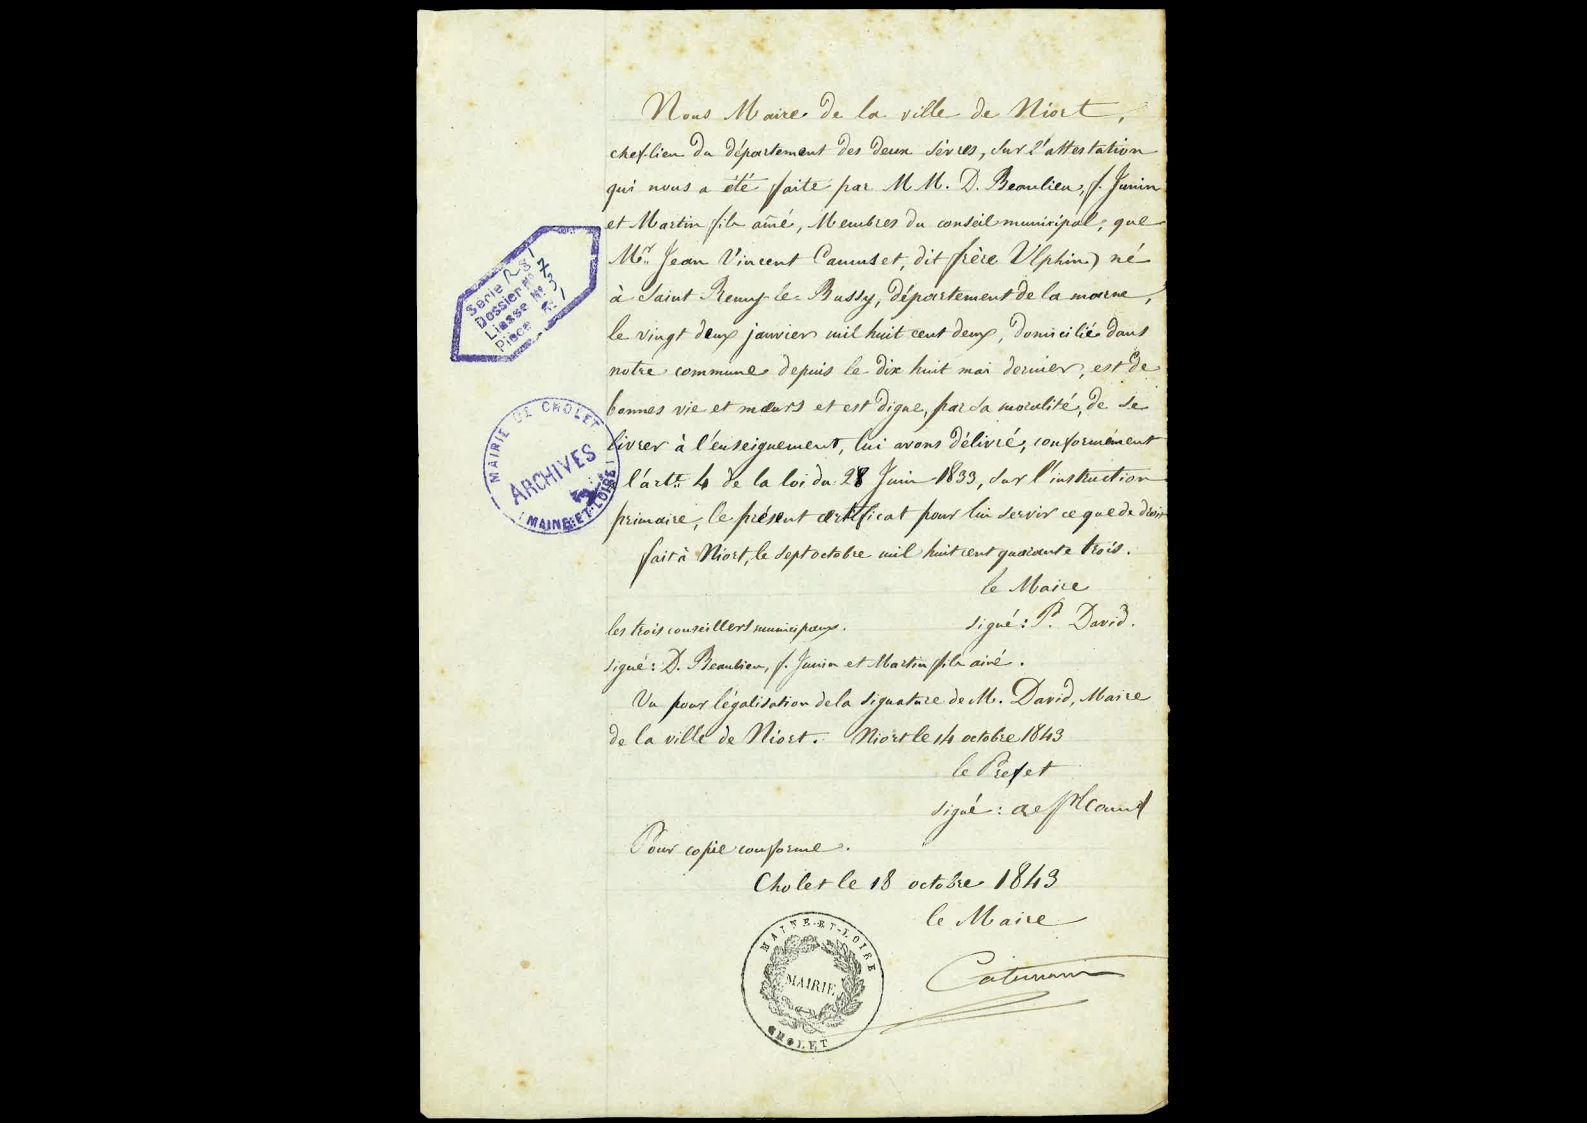 Nous Maire de la ville de Niort,
chef-lieu du département des deux sèvres, sur l'attestation
qui nous a été faite par MM. D. Beaulieu, f. Junin
et Martin fils aîné, Membres du conseil municipal, que
Mr. Jean Vincent Camuset, dit frère Ulphin) né
à Saint Remy-le-Bussy, département de la marne,
le vingt deux janvier mil huit cent deux, domicilié dans
notre commune depuis le dix huit mai dernier, est de
bonnes vie et mœurs et est digne, par sa moralité, de se
livrer à l'enseignement, lui avons délivré, conformément
l'arte. 4 de la loi du 28 Juin 1833, sur l'instruction
primaire, le présent certificat pour lui servir ce que de droit
fait à Niort, le sept octobre mil huit cent quarante trois.
le Maire
les trois conseillers municipaux. signé: P. David.
signé: D. Beaulieu, f. Junin et Martin fils aîné.
Vu pour légalisation de la signature de M. David, Maire
de la ville de Niort. Niort le 14 octobre 1843
le Préfet
signé:
Pour copie conforme.
Cholet le 18 octobre 1843
le Maire
Série R 81
Dossier No 7
Liasse No 3
Piece No 1
MAIRIE DE CHOLET
ARCHIVES
(MAINE-ET-LOIRE)
MAINE-ET-LOIRE
MAIRIE
CHOLET